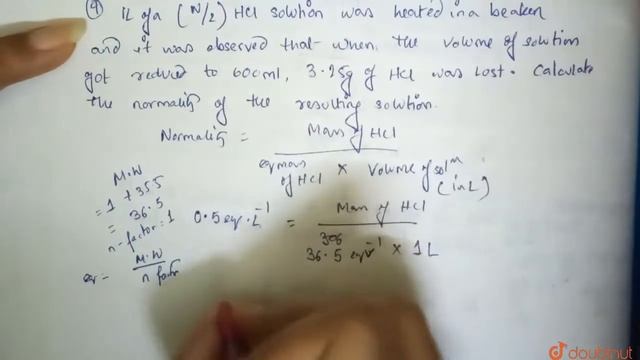 ④ 1L of a (N/2) HCl solution was heated in a beaker
and it was observed that when the volume of solution
got reduced to 600ml, 3.25g of HCl was lost. Calculate
the normality of the resulting solution.
Normality = Mass of HCl
eq mass of HCl × Volume of solⁿ (in L)
M.W
= 1 + 35.5
= 36.5
n-factor = 1
eq = M.W
n factor
0.5 eq. L⁻¹ = Mass of HCl
36.5 eqv⁻¹ × 1L
doubtnut